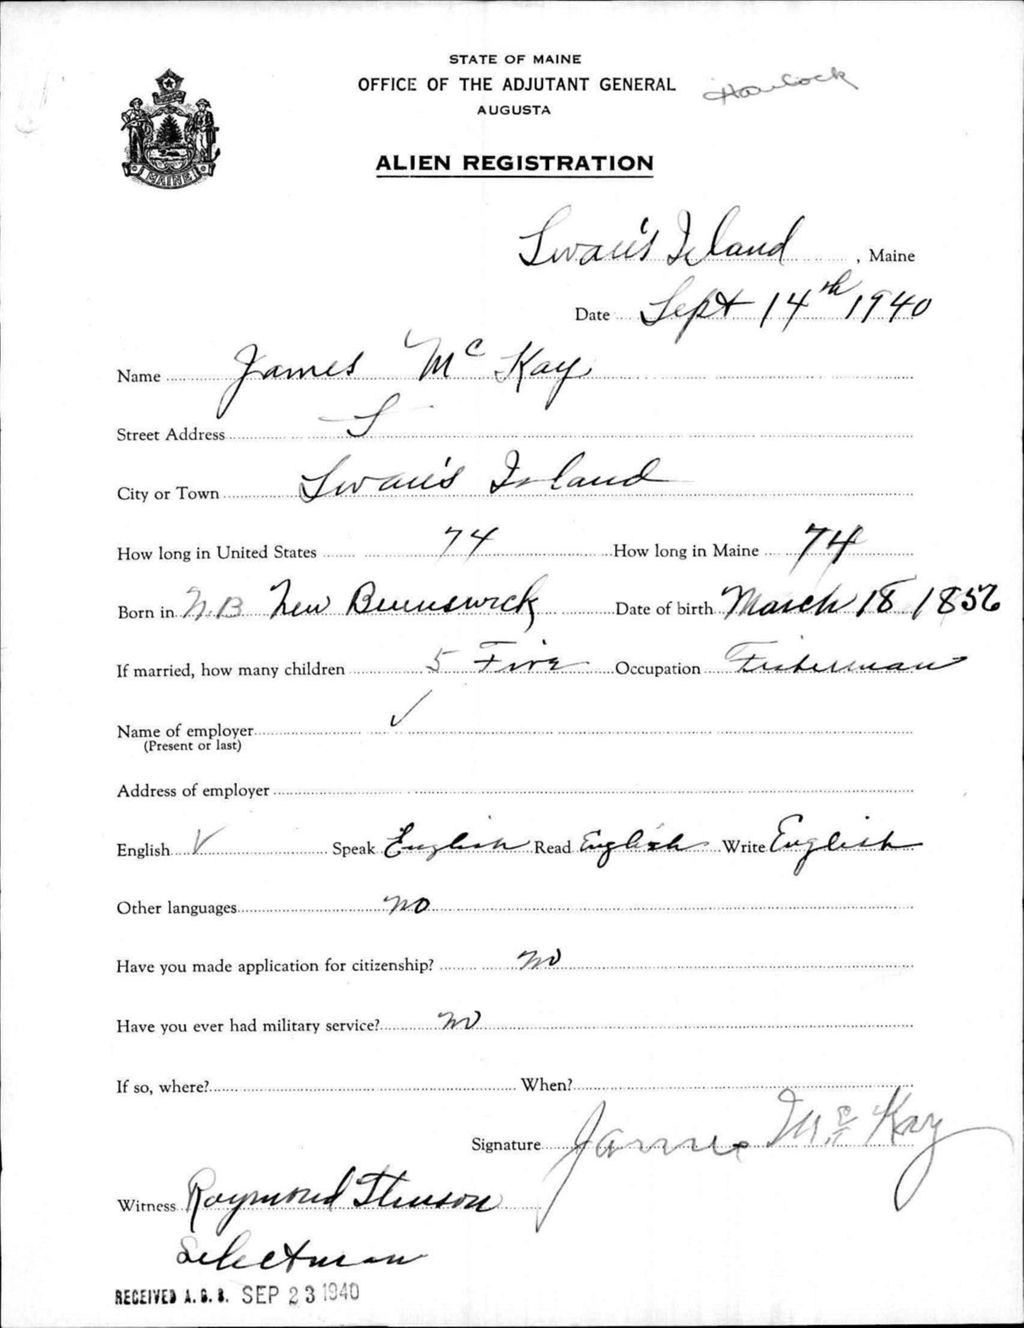 STATE OF MAINE
OFFICE OF THE ADJUTANT GENERAL
AUGUSTA
Hancock
MAINE
ALIEN REGISTRATION
Swan's Island, Maine
Date Sept 14th 1940
Name James McKay
Street Address
City or Town Swan's Island
How long in United States 74 How long in Maine 74
Born in N.B New Brunswick Date of birth March 18 1856
If married, how many children 5 Five Occupation Fisherman
Name of employer
(Present or last)
Address of employer
English V Speak English Read English Write English
Other languages no
Have you made application for citizenship? no
Have you ever had military service? no
If so, where? When?
Signature James McKay
Witness Raymond Stinson
Selectman
RECEIVED A.G.O. SEP 23 1940